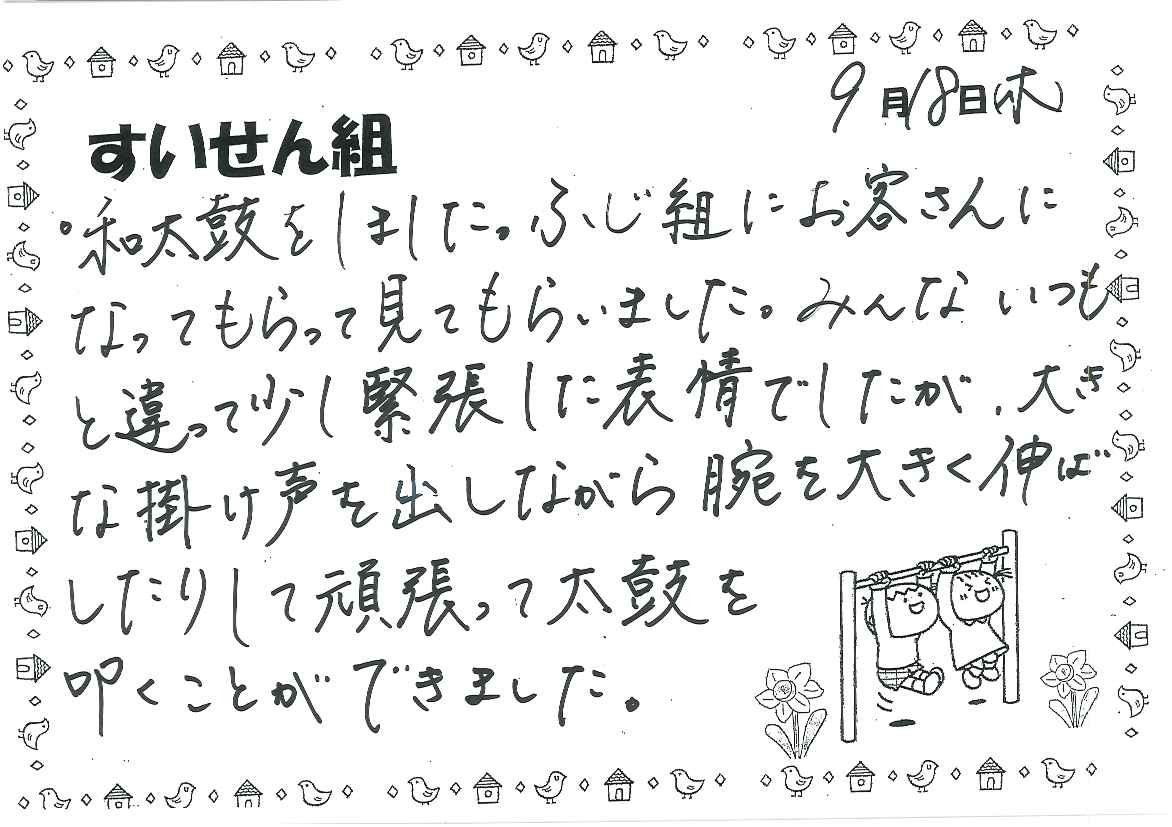 9月18日(木)
すいせん組
・和太鼓をしました。ふじ組にお客さんに
なってもらって見てもらいました。みんないつも
と違って少し緊張した表情でしたが、大き
な掛け声を出しながら腕を大きく伸ば
したりして頑張って太鼓を
叩くことができました。